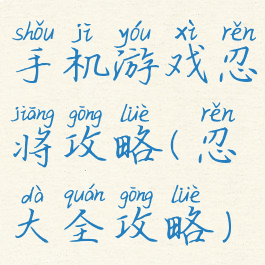 shǒu jī yóu xì rěn
手机游戏忍
jiāng gōng lüè rěn
将攻略(忍
dà quán gōng lüè
大全攻略)